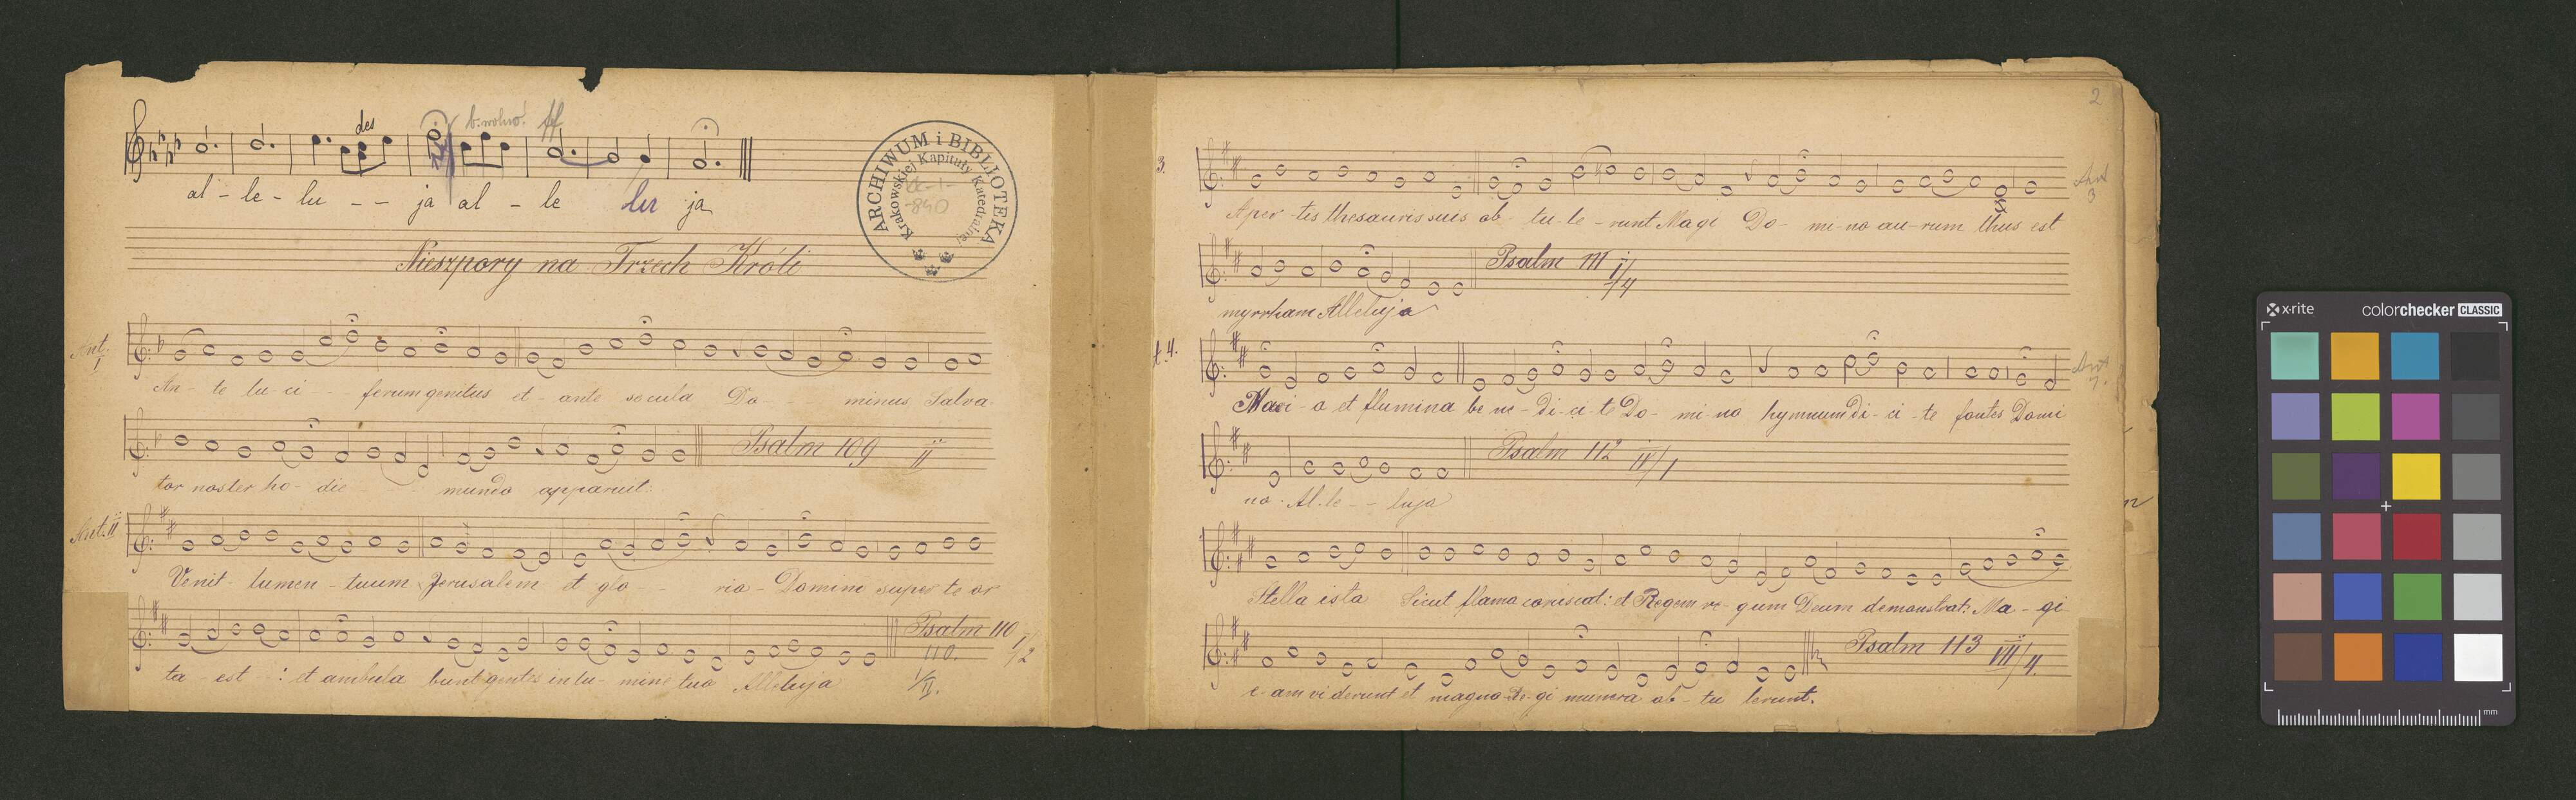 des
b. wolno! ff
al - le - lu - - ja al - le lu ja
ARCHIWUM i BIBLIOTEKA
Krakowskiej Kapituły Katedralnej
840
Nieszpory na Trzech Króli
Ant. I
An - te lu - ci - - ferum genitus et - ante secula Do - - minus Salva-
tor noster ho - die - - - mundo apparuit:
Psalm 109 II
Ant. II
Venit - lumen - tuum Jerusalem et glo - - ria - Domini super te or
ta - est - : et ambula bunt gentes in lu - mine tuo Alleluja
Psalm 110 1/2
110.
I/II.
2
3.
Aper - tis thesauris suis ob tu - le - runt Magi Do - mi - no au - rum thus est
Ant 3
myrrham Alleluja
Psalm 111 I/4
4.
Mari - a et flumina be ne - di - ci te Do - mi - no hymnum di - ci - te fontes Domi
no - Al - le - - luja
Psalm 112 IV/1
Stella ista Sicut flama coruscat: et Regem re - gum Deum demonstrat: Ma - gi
e - am viderunt et magno Re - gi munera ob - tu lerunt.
Psalm 113 VII/4.
x-rite
colorchecker CLASSIC
mm